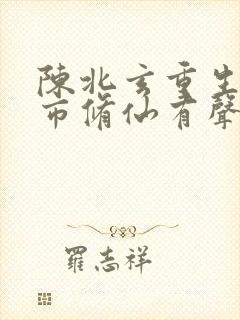 陳北玄重生
市脩仙有聲
羅志祥